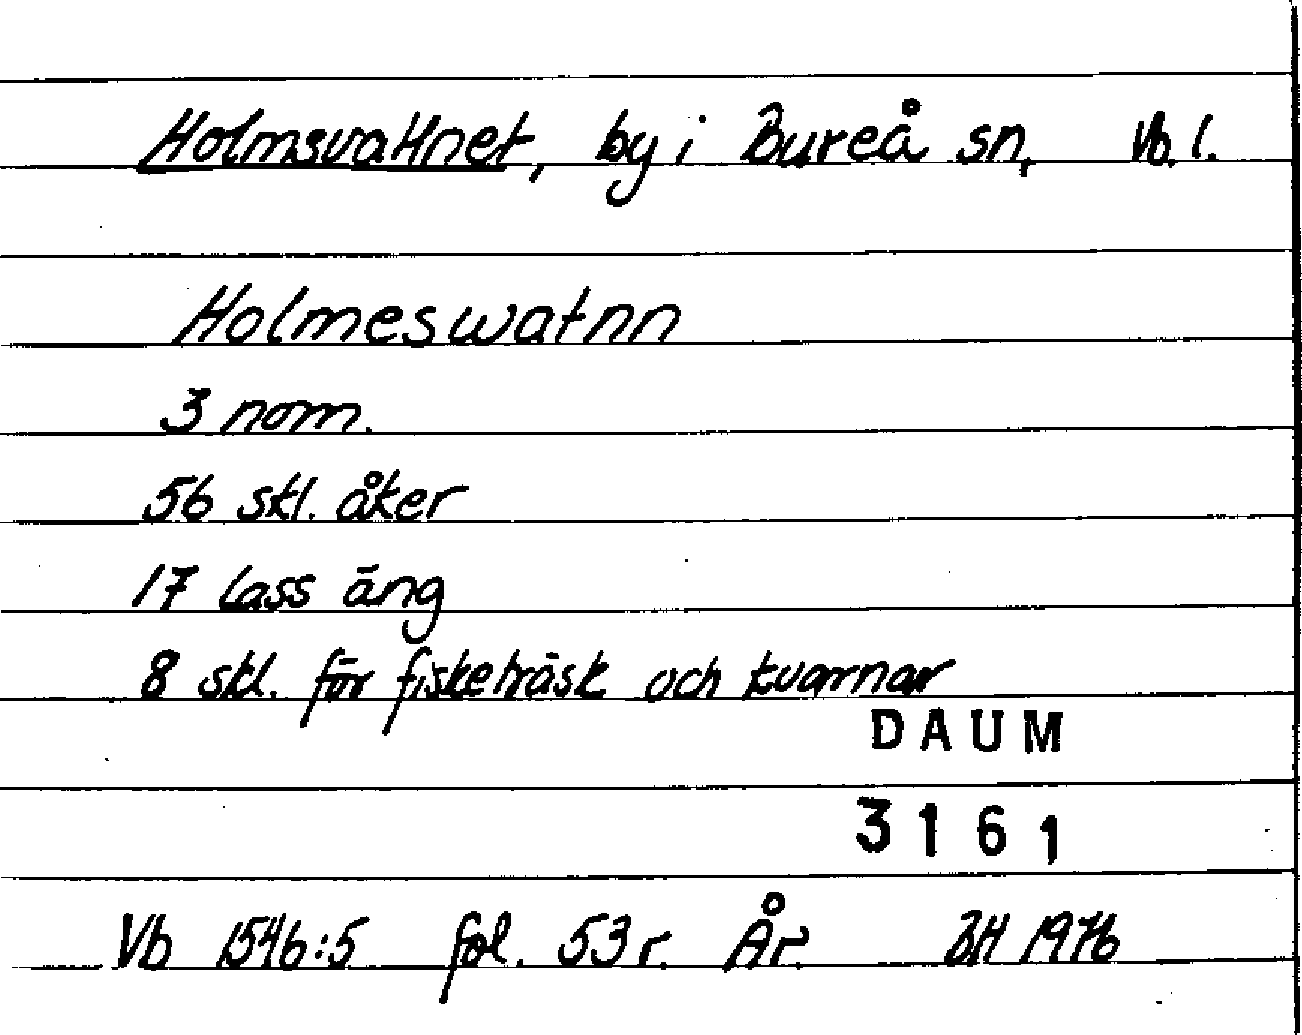 Holmsvattnet, by i Bureå sn, Vb. l.
Holmeswatnn
3 nom.
56 skl. åker
17 lass äng
8 skl. för fisketräsk och kvarnar
DAUM
3161
Vb 1546:5 fol. 53 r. År. BH 1976